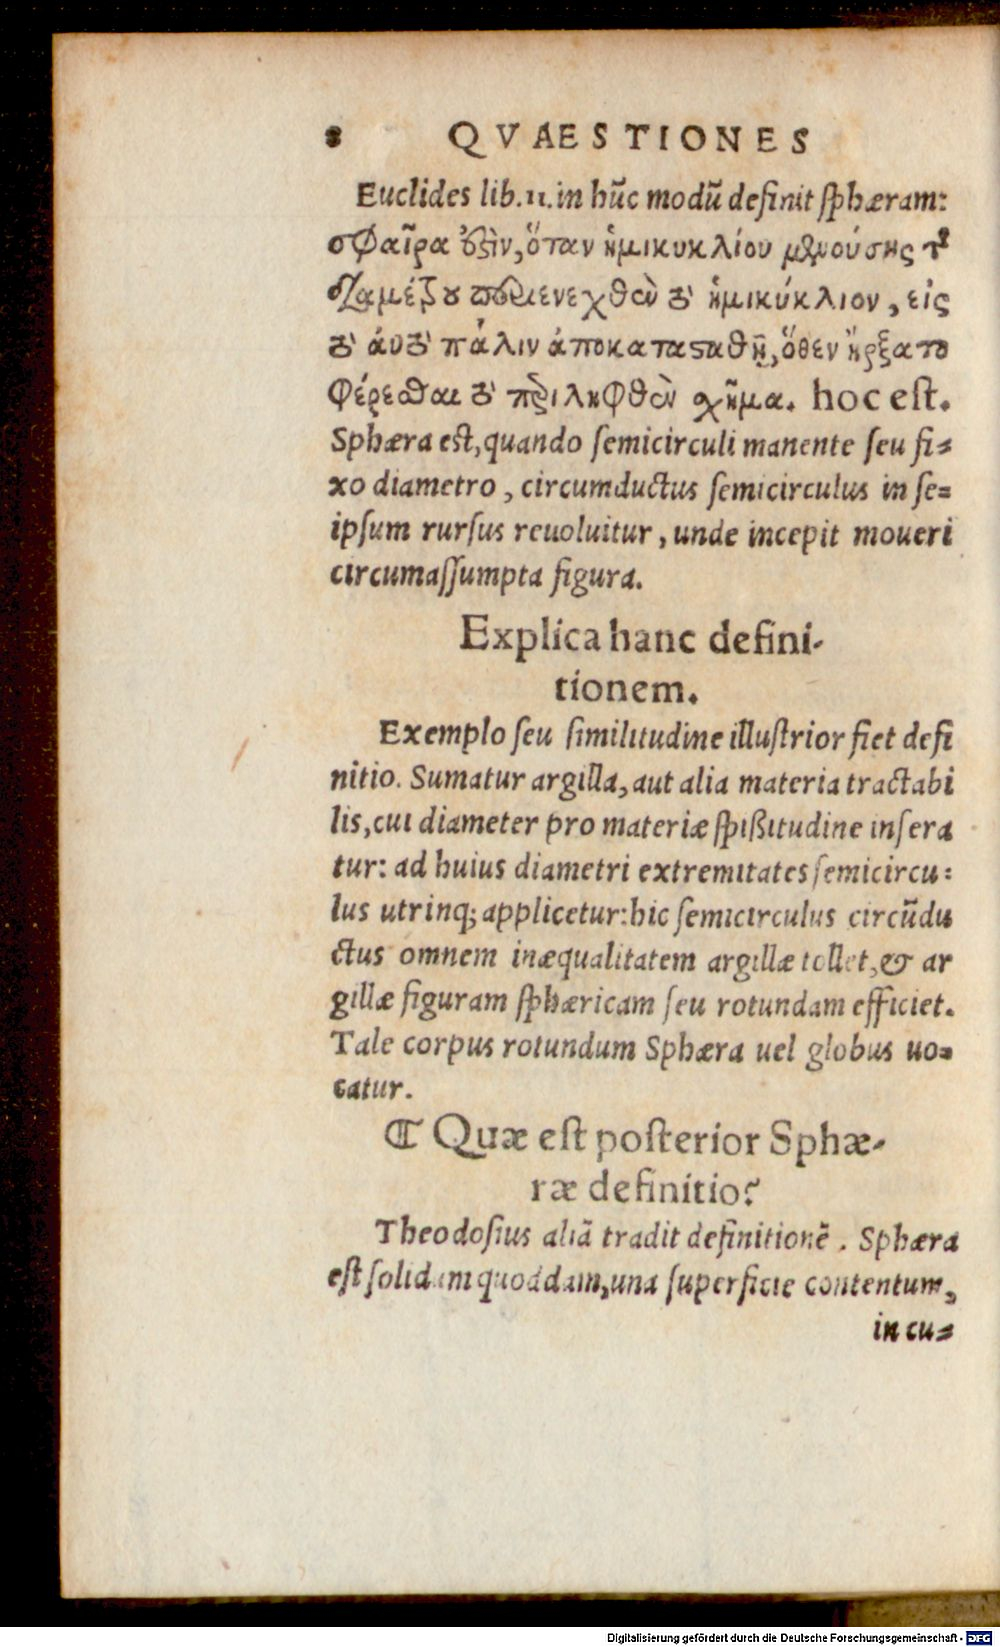 8 QVAESTIONES
Euclides lib. 11. in hũc modũ definit sphæram:
σφαῖρα ἐστὶν, ὅταν ἡμικυκλίου μενούσης τῆς
διαμέτρου περιενεχθὲν τὸ ἡμικύκλιον, εἰς
τὸ αὐτὸ πάλιν ἀποκατασταθῇ, ὅθεν ἤρξατο
φέρεσθαι τὸ περιληφθὲν σχῆμα. hoc est.
Sphæra est, quando semicirculi manente seu fi-
xo diametro, circumductus semicirculus in se-
ipsum rursus reuoluitur, unde incepit moueri
circumassumpta figura.
Explica hanc defini-
tionem.
Exemplo seu similitudine illustrior fiet defi
nitio. Sumatur argilla, aut alia materia tractabi
lis, cui diameter pro materiæ spißitudine insera
tur: ad huius diametri extremitates semicircu-
lus utrinq; applicetur: hic semicirculus circũdu
ctus omnem inæqualitatem argillæ tollet, & ar
gillæ figuram sphæricam seu rotundam efficiet.
Tale corpus rotundum Sphæra uel globus uo-
catur.
¶ Quæ est posterior Sphæ-
ræ definitio?
Theodosius aliã tradit definitionẽ. Sphæra
est solidum quoddam, una superficie contentum,
in cu-
Digitalisierung gefördert durch die Deutsche Forschungsgemeinschaft - DFG